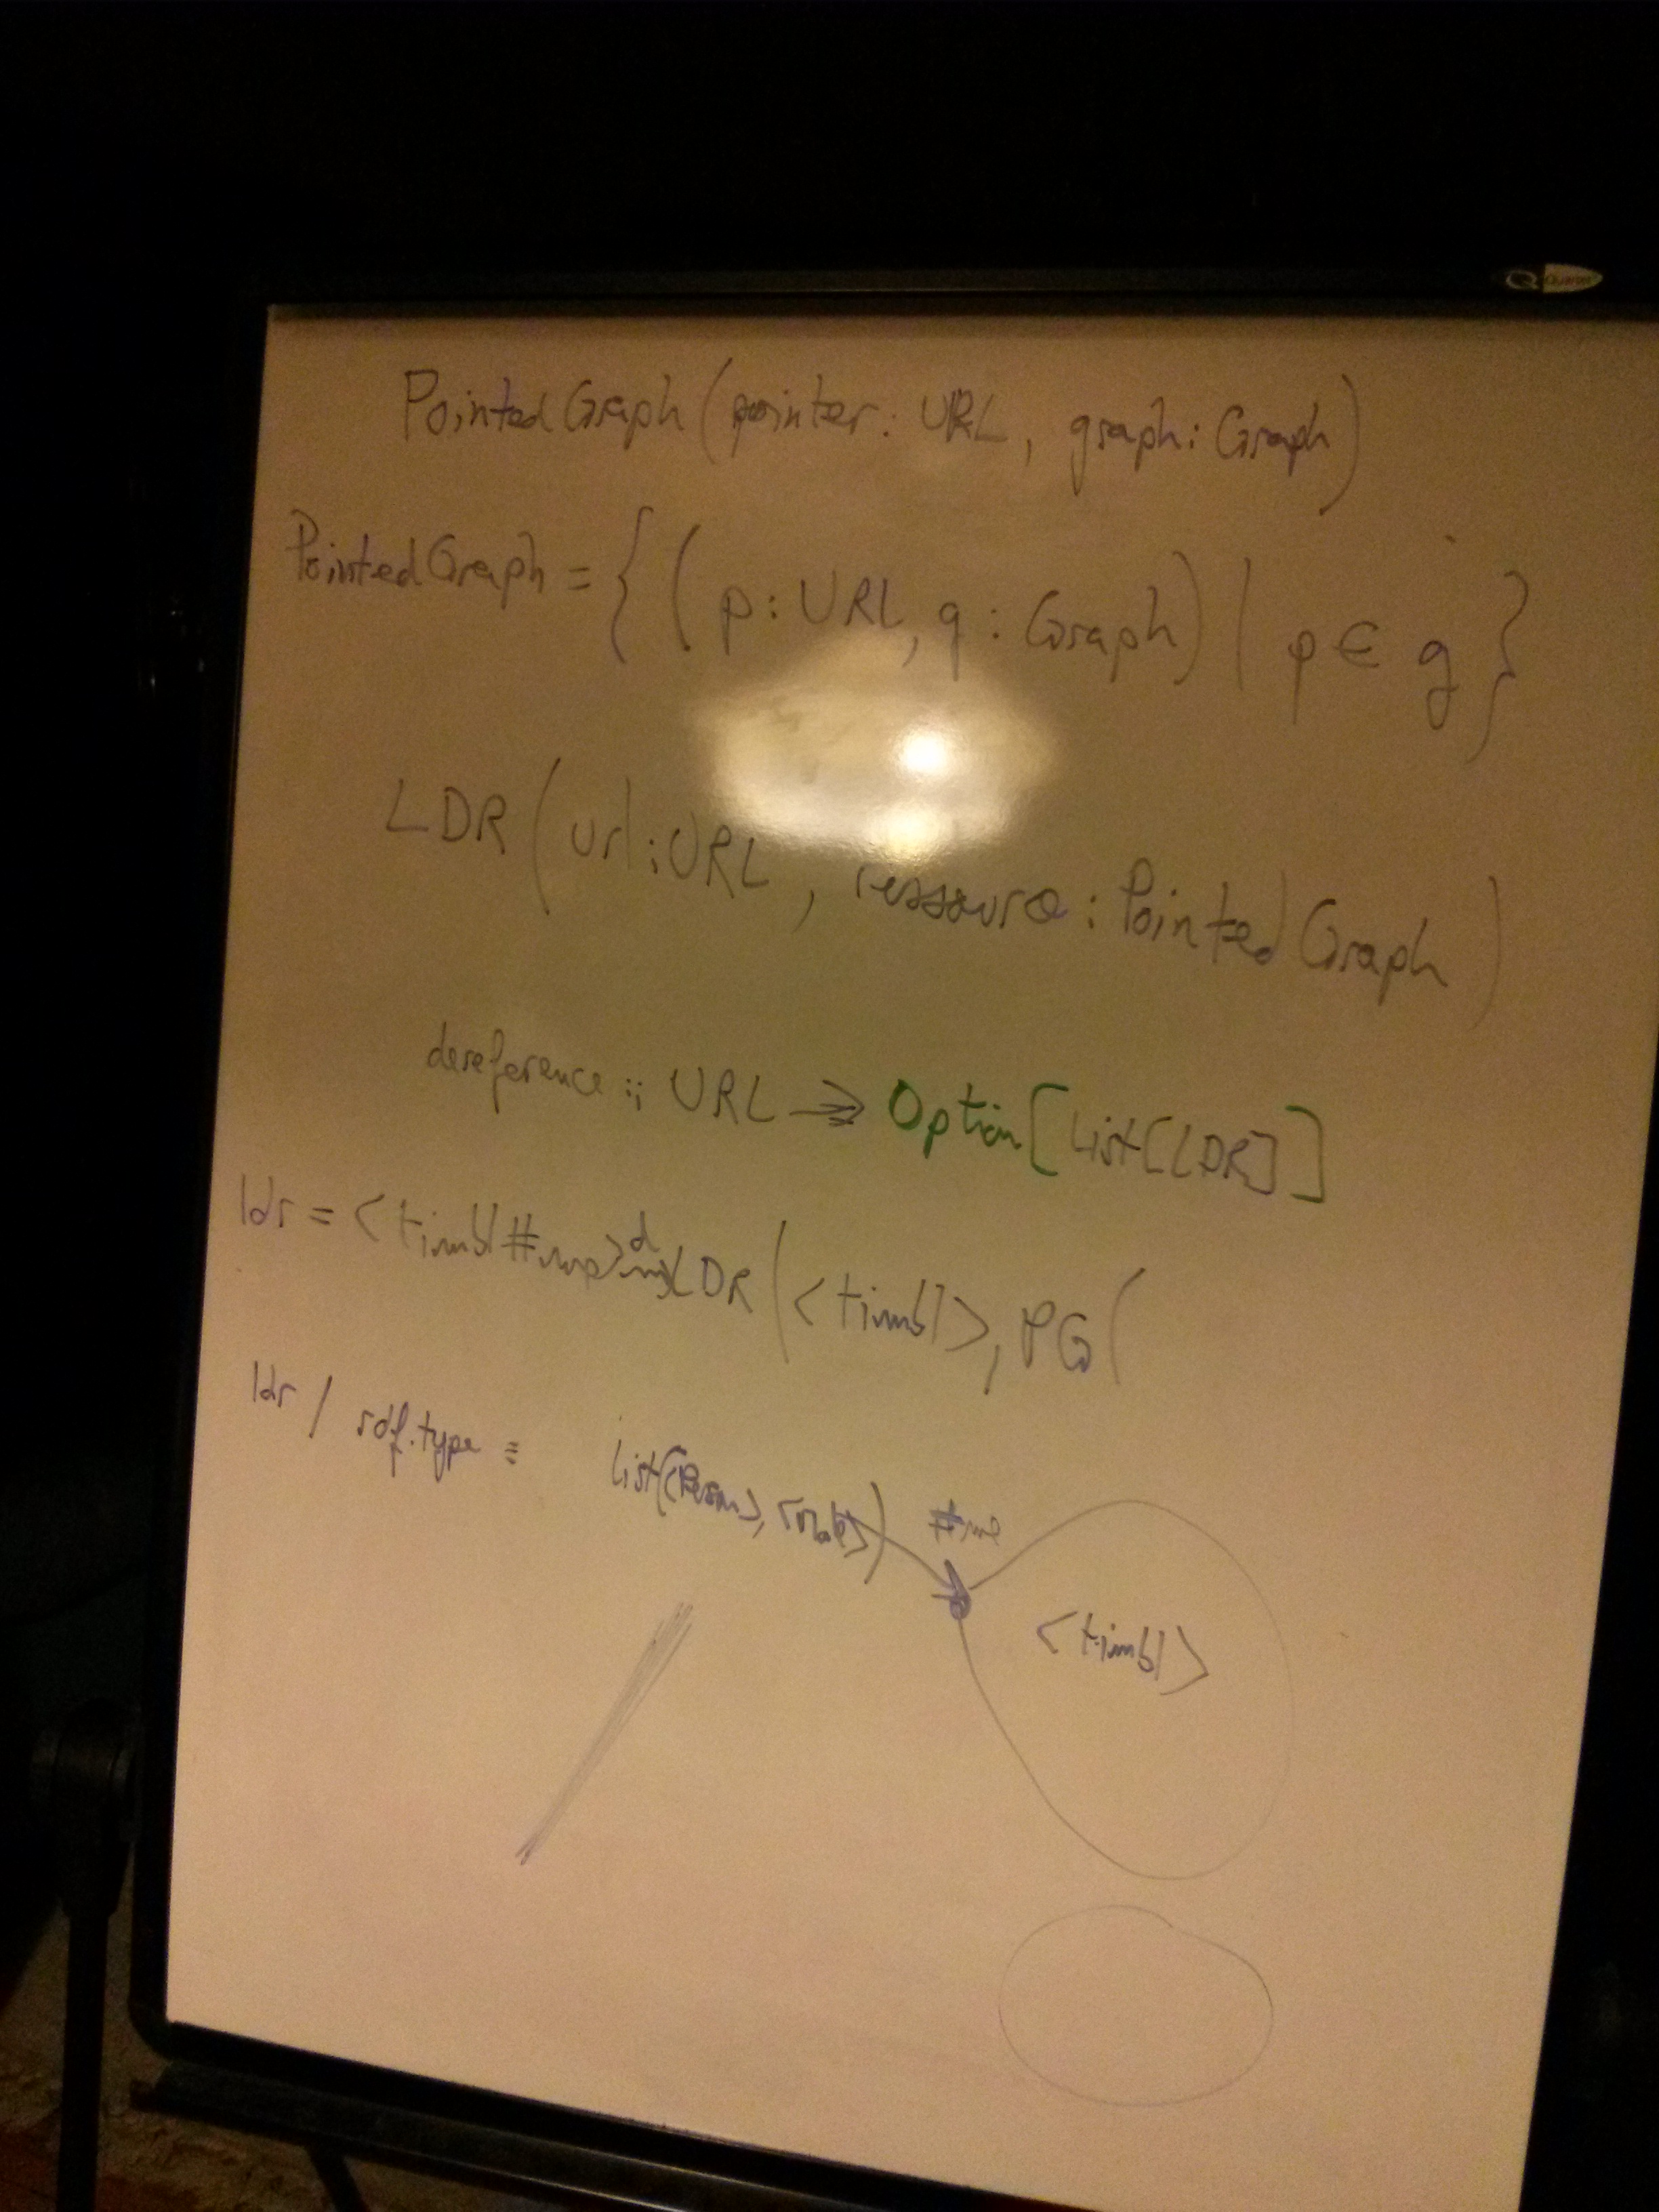 Quartet
PointedGraph(pointer: URL, graph: Graph)
PointedGraph = { ( p: URL, g: Graph) | p ∈ g }
LDR ( url: URL, ressource: PointedGraph )
dereference :: URL => Option[List[LDR]]
ldr = <timbl#me> LDR(<timbl>, PG(
ldr / rdf.type = List(<Person>,
#me
<timbl>